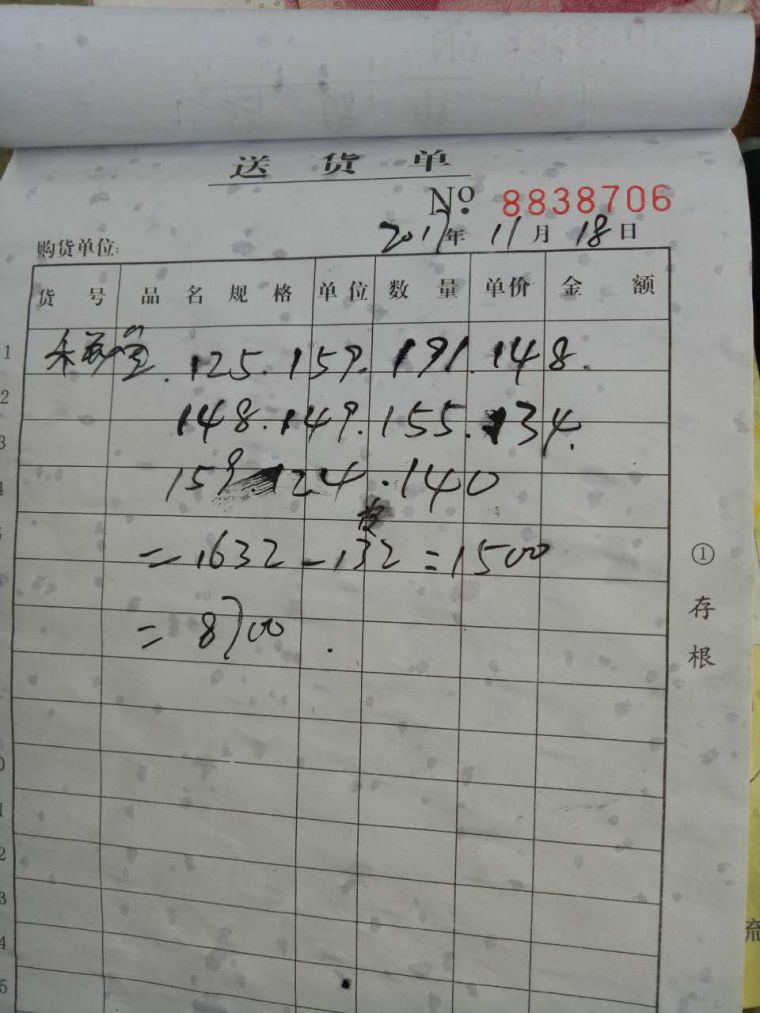 送 货 单
No. 8838706
购货单位: 2017年 11月 18日
货 号 品 名 规 格 单 位 数 量 单价 金 额
125. 159. 191. 148.
148. 149. 155. 134.
159 124 . 140
= 1632 - 132 = 1500
= 8700 .
① 存 根